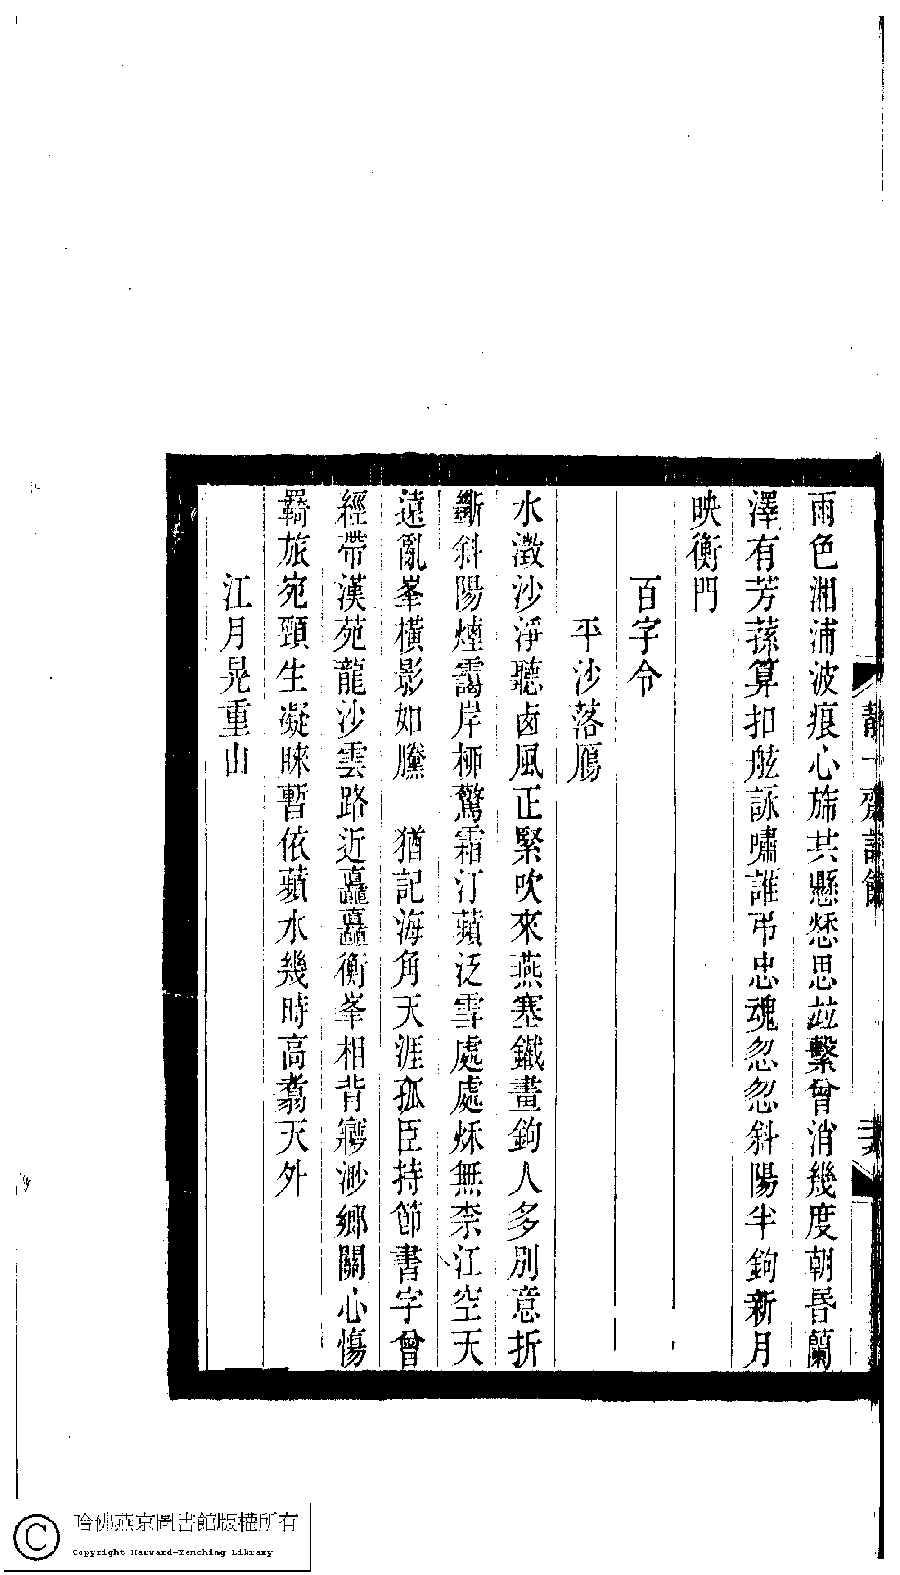 靜一齋詩餘
雨色湘浦波痕心旆共懸愁思並繫曾消幾度朝昬蘭
澤有芳蓀算扣舷詠嘯誰弔忠魂忽忽斜陽半鉤新月
映衡門
百字令
平沙落鴈
水澂沙淨聽卤風正緊吹來燕塞鐵畫鉤人多別意折
斷斜陽煙靄岸柳驚霜汀蘋泛雪處處烁無柰江空天
遠亂峯橫影如騰 猶記海角天涯孤臣持節書字曾
經帶漢苑龍沙雲路近矗矗衡峯相背寥渺鄉關心傷
羇旅宛頸生凝睐暫依蘋水幾時高翥天外
江月晃重山
哈佛燕京圖書館版權所有
Copyright Harvard-Yenching Library